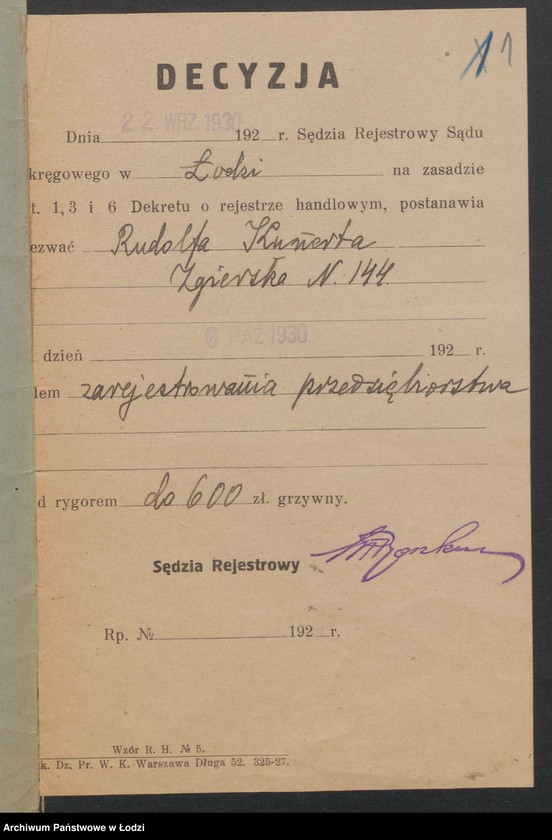 1
DECYZJA
Dnia 22 WRZ. 1930 192 r. Sędzia Rejestrowy Sądu
kręgowego w Łodzi na zasadzie
t. 1, 3 i 6 Dekretu o rejestrze handlowym, postanawia
ezwać Rudolfa Kunerta
Zgierska N. 144
dzień 6 PAŹ 1930 192 r.
lem zarejestrowania przedsiębiorstwa
d rygorem do 600 zł. grzywny.
Sędzia Rejestrowy
Rp. № 192 r.
Wzór R. H. № 5.
k. Dz. Pr. W. K. Warszawa Długa 52. 325-27.
Archiwum Państwowe w Łodzi